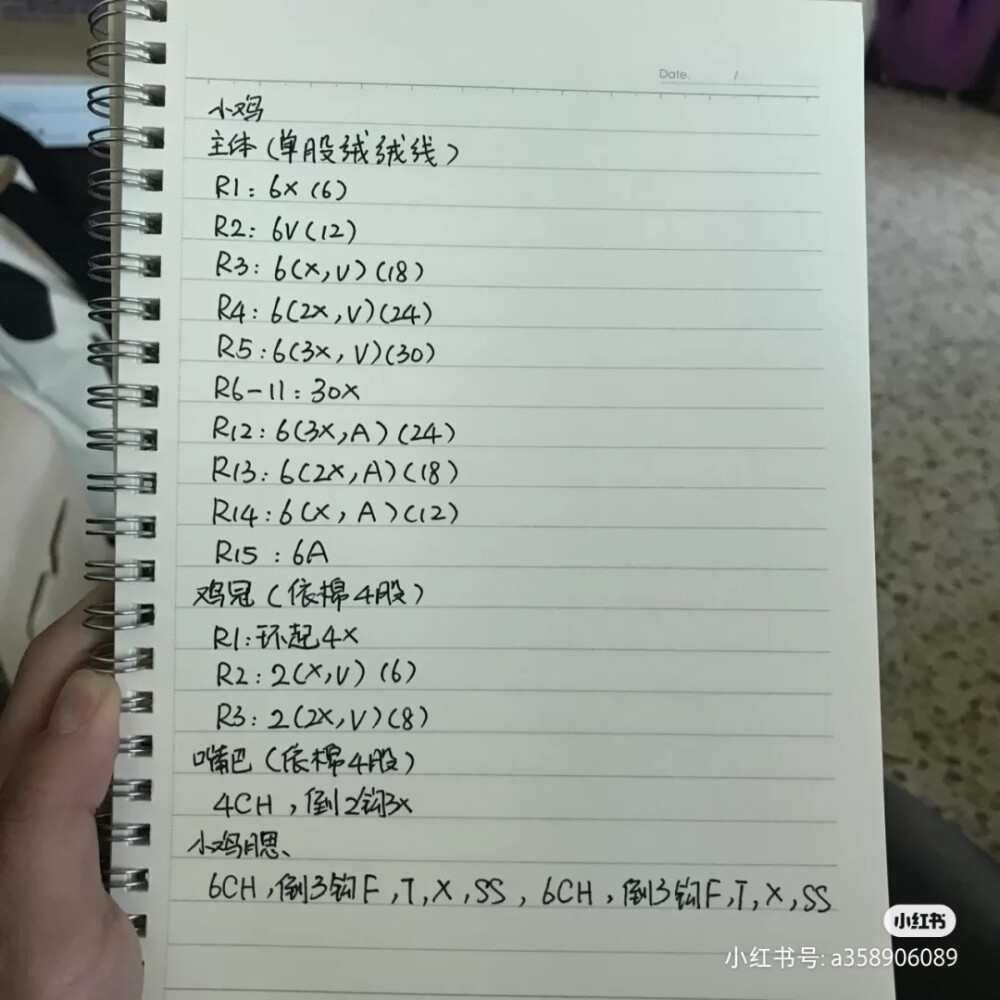 Date. /
小鸡
主体(单股绒绒线)
R1: 6x (6)
R2: 6V(12)
R3: 6(x,V)(18)
R4: 6(2x,V)(24)
R5:6(3x, V)(30)
R6-11: 30x
R12: 6(3x,A)(24)
R13: 6(2x,A)(18)
R14: 6(x, A)(12)
R15 : 6A
鸡冠(依棉4股)
R1:环起4x
R2: 2(x,V) (6)
R3: 2(2x,V)(8)
嘴巴(依棉4股)
4CH ,倒2钩3x
小鸡腮、
6CH,倒3钩F,T,X,SS, 6CH,倒3钩F,T,X,SS
小红书
小红书号: a358906089